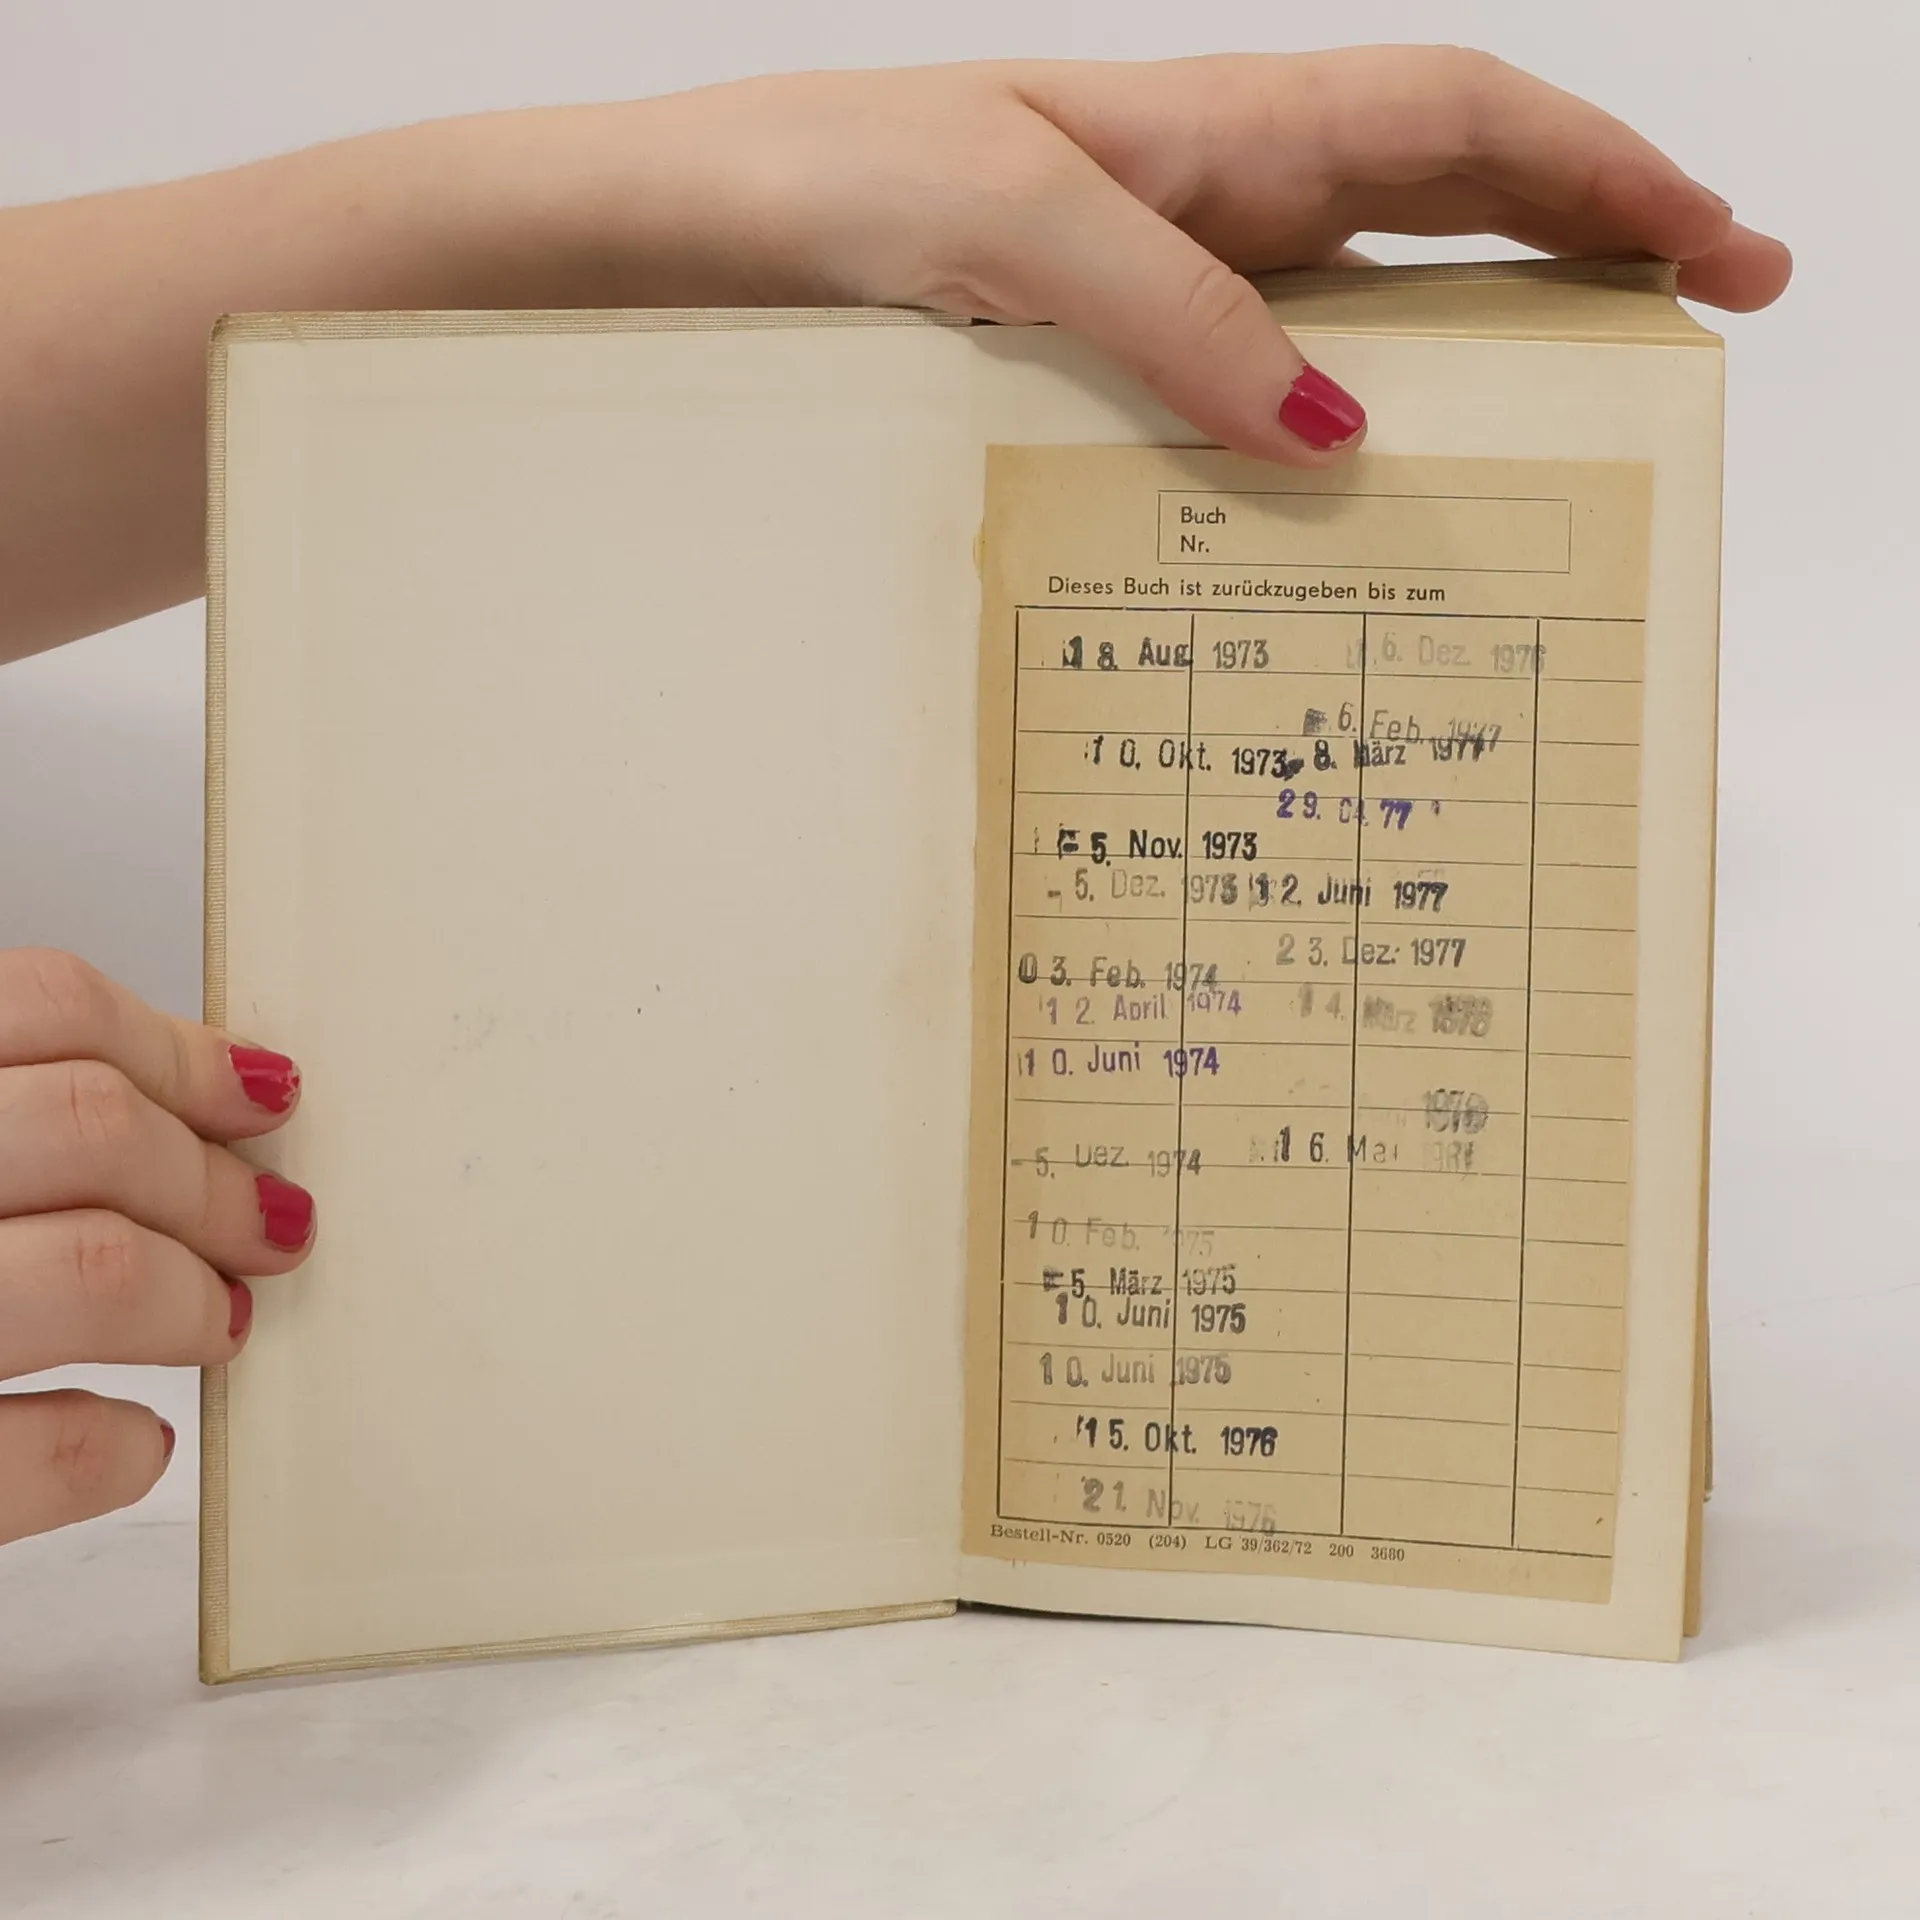 Buch
Nr.
Dieses Buch ist zurückzugeben bis zum
18. Aug. 1973
10. Okt. 1973
5. Nov. 1973
- 5. Dez. 1973
3. Feb. 1974
12. April 1974
10. Juni 1974
- 5. Dez. 1974
10. Feb. 1975
5. März 1975
10. Juni 1975
10. Juni 1975
15. Okt. 1976
21. Nov. 1976
6. Dez. 1976
6. Feb. 1977
8. März 1977
29. 04. 77
12. Juni 1977
23. Dez. 1977
14. März 1978
16. Mai
Bestell-Nr. 0520 (204) LG 39/362/72 200 3680